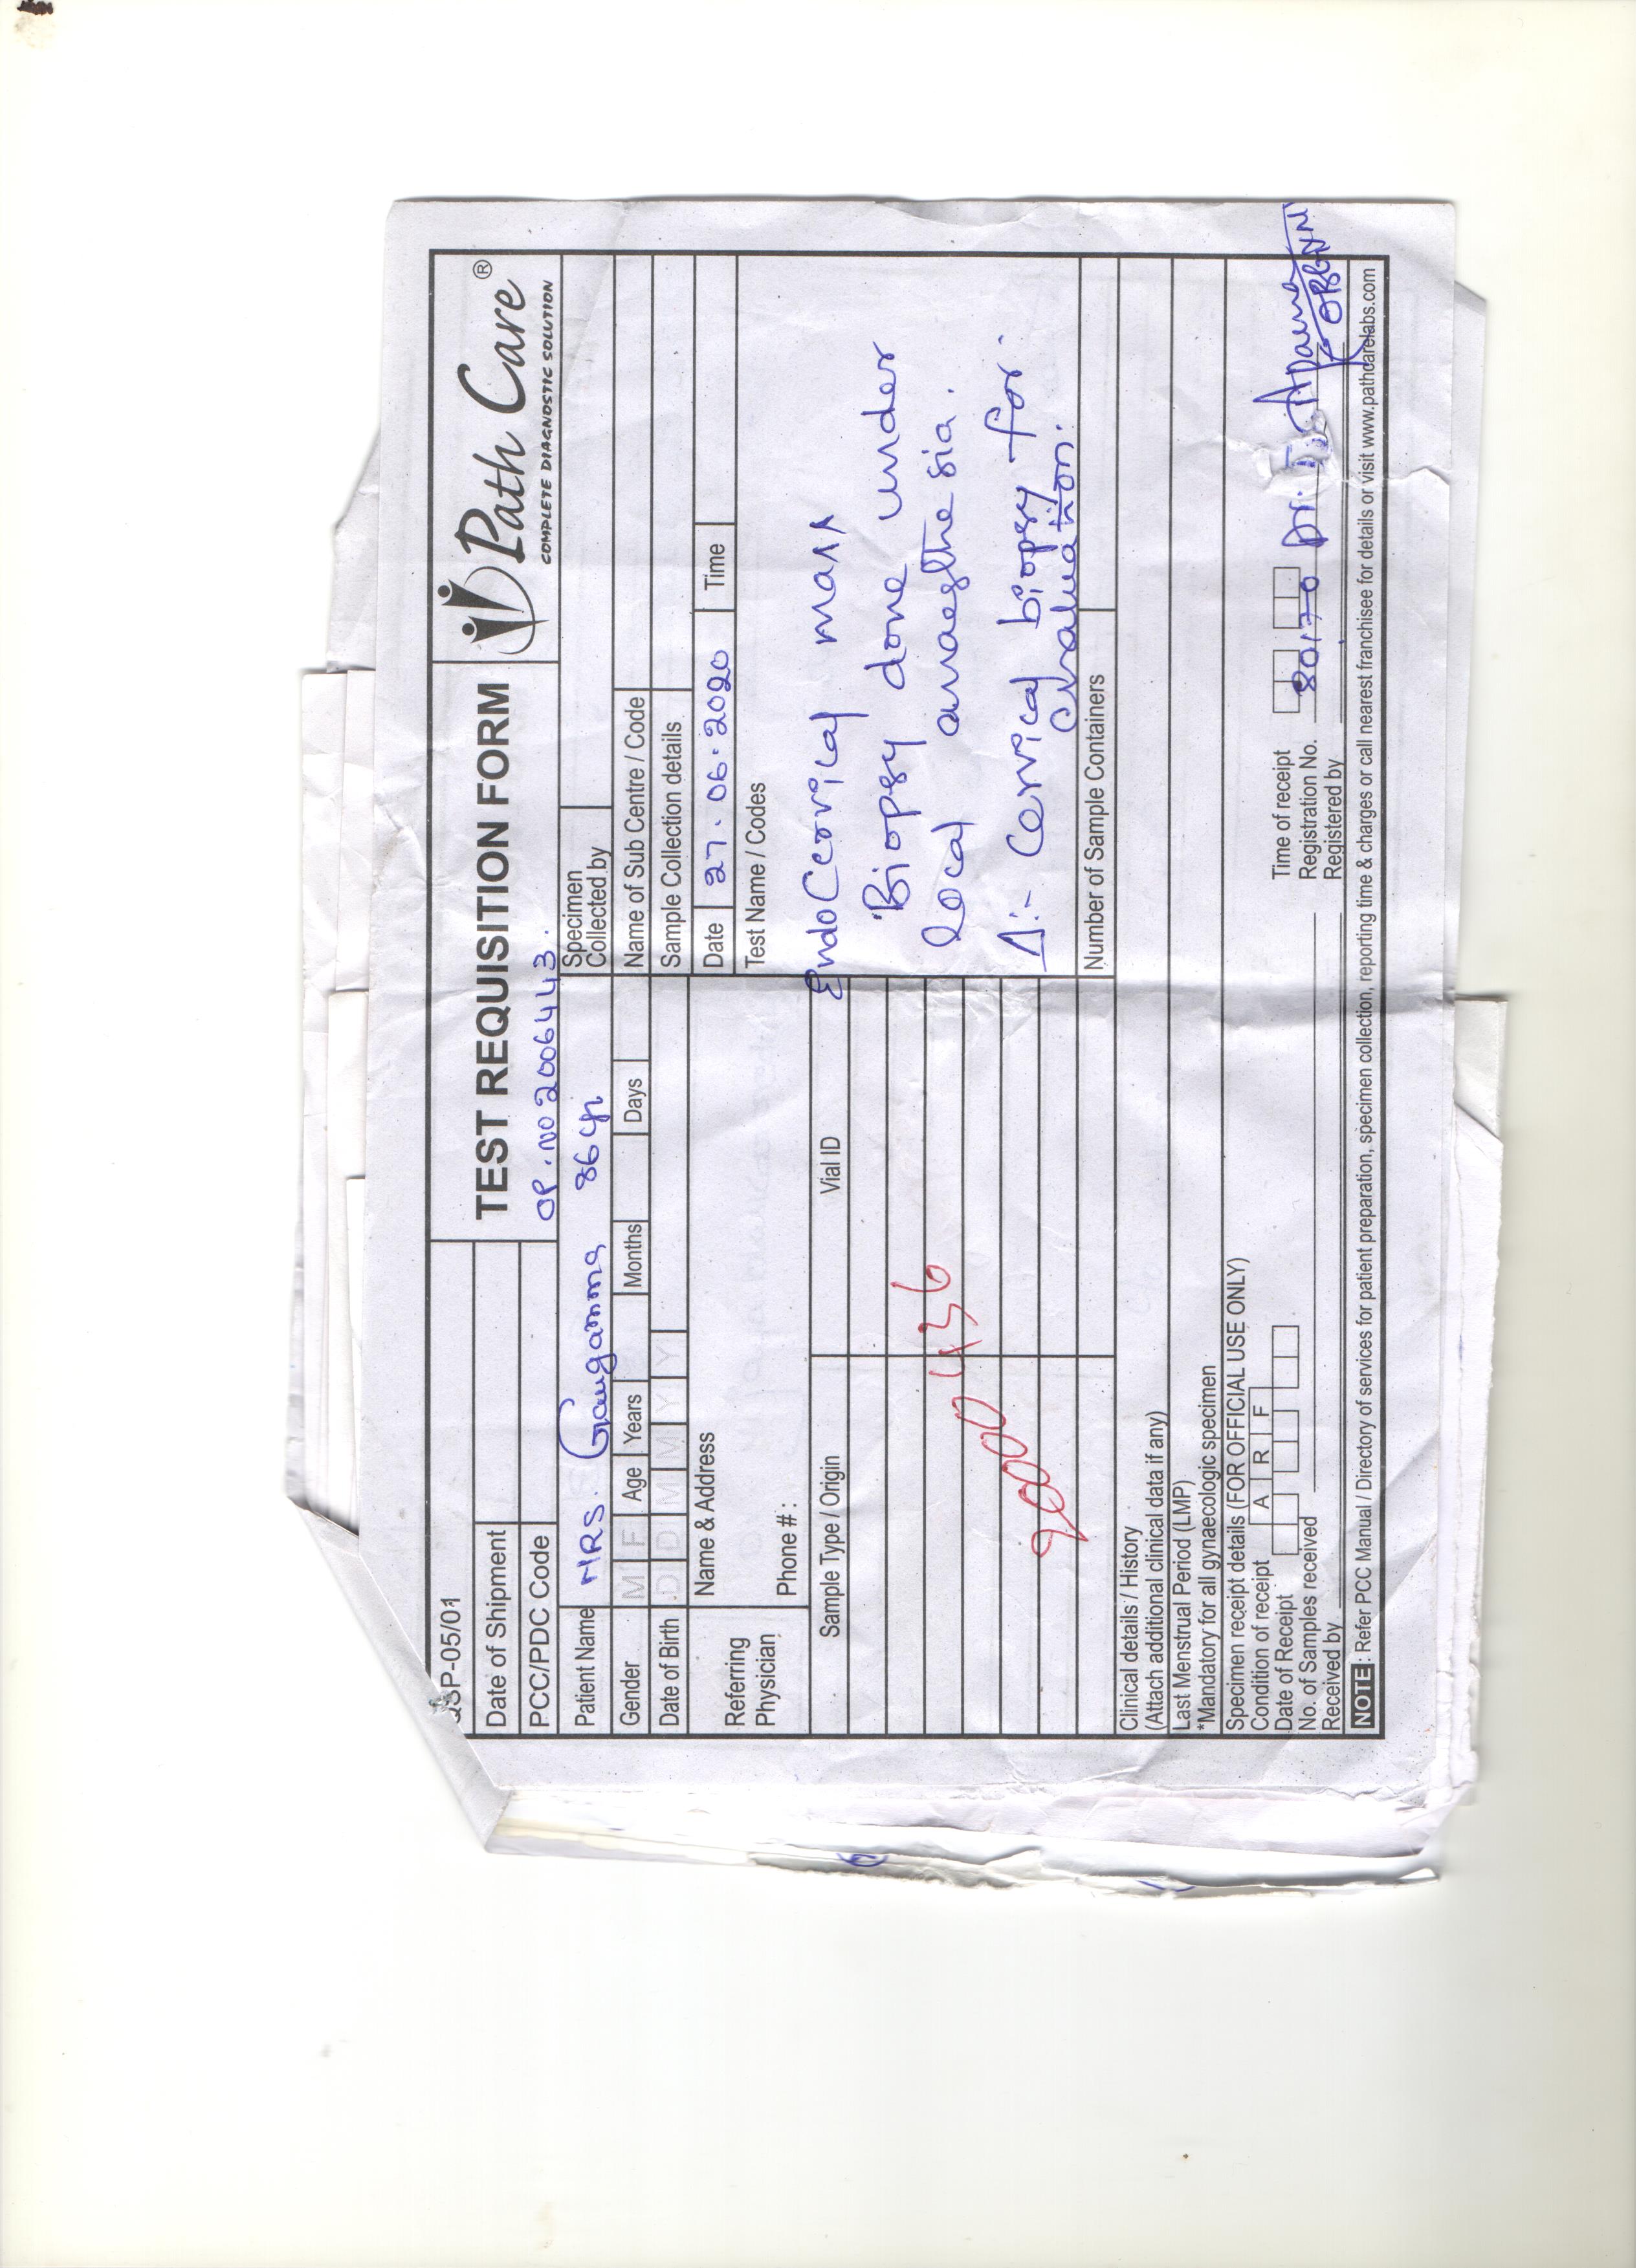 QSP-05/01
TEST REQUISITION FORM
Path Care®
COMPLETE DIAGNOSTIC SOLUTION
Date of Shipment
PCC/PDC Code
OP. NO 2006443.
Patient Name MRS. Gangamma 86 yr
Specimen
Collected by
Gender M F Age Years Months Days
Name of Sub Centre / Code
Date of Birth D D M M Y Y
Sample Collection details
Referring
Physician
Name & Address
Phone # :
Date 27.06.2020 Time
Test Name / Codes
Sample Type / Origin Vial ID
EndoCervical mass
Biopsy done under
local anaesthesia.
Δ:- Cervical biopsy for
evaluation.
2000436
Number of Sample Containers
Clinical details / History
(Attach additional clinical data if any)
Last Menstrual Period (LMP)
*Mandatory for all gynaecologic specimen
Specimen receipt details (FOR OFFICIAL USE ONLY)
Condition of receipt A R F
Date of Receipt Time of receipt
No. of Samples received Registration No. 80170 Dr.
Received by Registered by
OBGYN
NOTE : Refer PCC Manual / Directory of services for patient preparation, specimen collection, reporting time & charges or call nearest franchisee for details or visit www.pathcarelabs.com